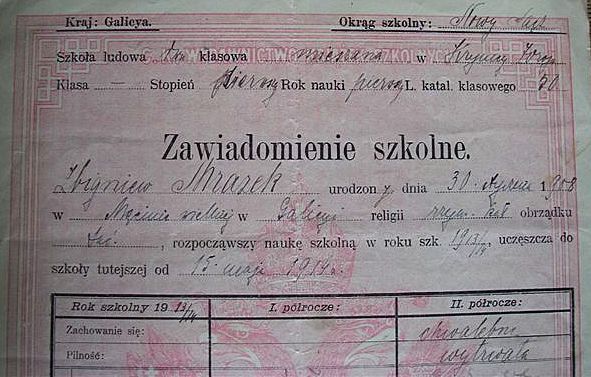 Kraj: Galicya. Okrąg szkolny: Nowy Sącz
Szkoła ludowa klasowa mieszana w Krynicy Zdroju
Klasa — Stopień pierwszy Rok nauki pierwszy L. katal. klasowego 30
Zawiadomienie szkolne.
Zbigniew Mrazek urodzony dnia 30 1908
w w Galicyi religii rzym. kat. obrządku
łać., rozpocząwszy naukę szkolną w roku szk. 1913/14 uczęszcza do
szkoły tutejszej od 15 maja 1914 r.
Rok szkolny 1913/14 I. półrocze: II. półrocze:
Zachowanie się: chwalebne
Pilność: wytrwała